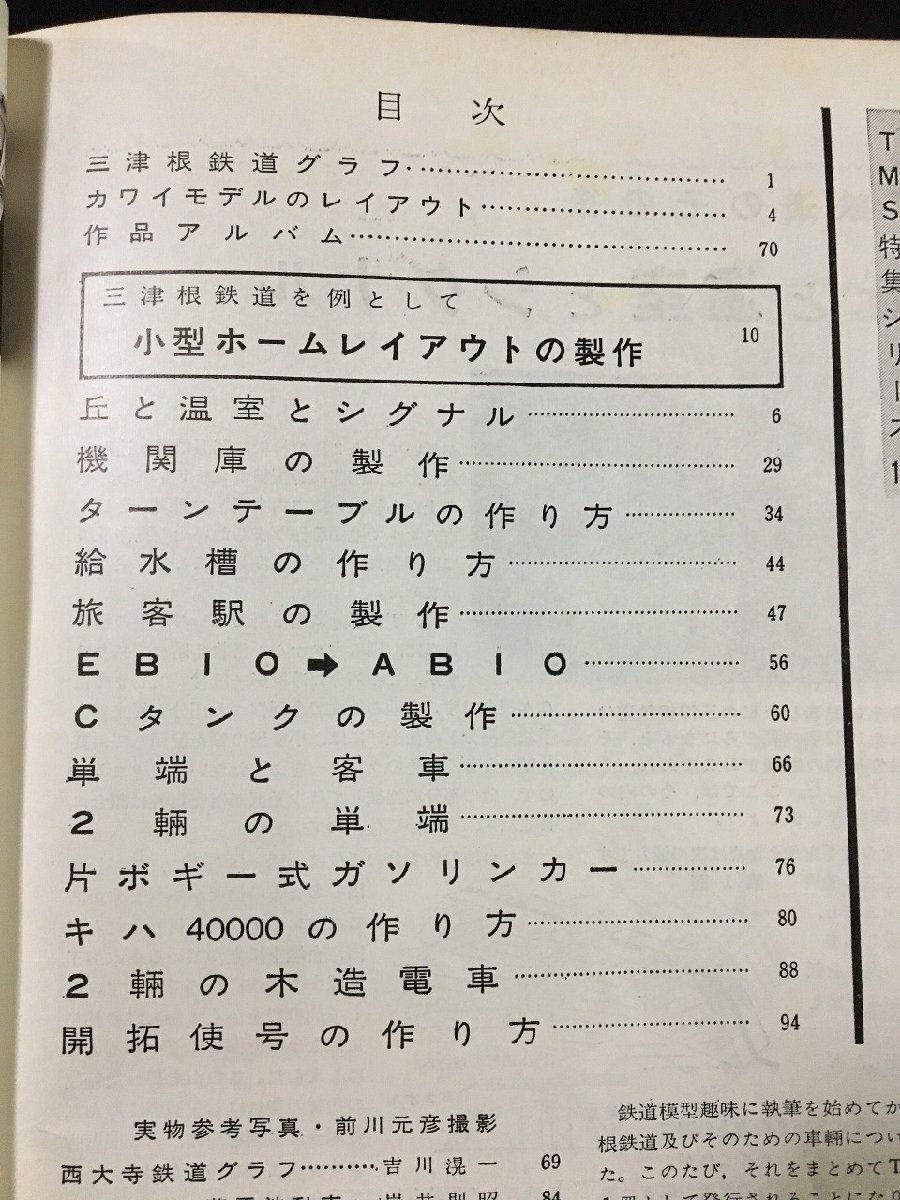 目次
三津根鉄道グラフ…………………………1
カワイモデルのレイアウト…………………4
作品アルバム………………………………70
三津根鉄道を例として
小型ホームレイアウトの製作 10
丘と温室とシグナル…………………6
機関庫の製作…………………………29
ターンテーブルの作り方…………34
給水槽の作り方……………………44
旅客駅の製作…………………………47
EB10➡AB10……………………56
Cタンクの製作………………………60
単端と客車……………………………66
2輛の単端……………………………73
片ボギー式ガソリンカー…………76
キハ40000の作り方…………………80
2輛の木造電車………………………88
開拓使号の作り方……………………94
実物参考写真・前川元彦撮影
西大寺鉄道グラフ………吉川滉一 69
84
TMS特集シリーズ1
鉄道模型趣味に執筆を始めてか
根鉄道及びそのための車輛につい
た。このたび，それをまとめてT